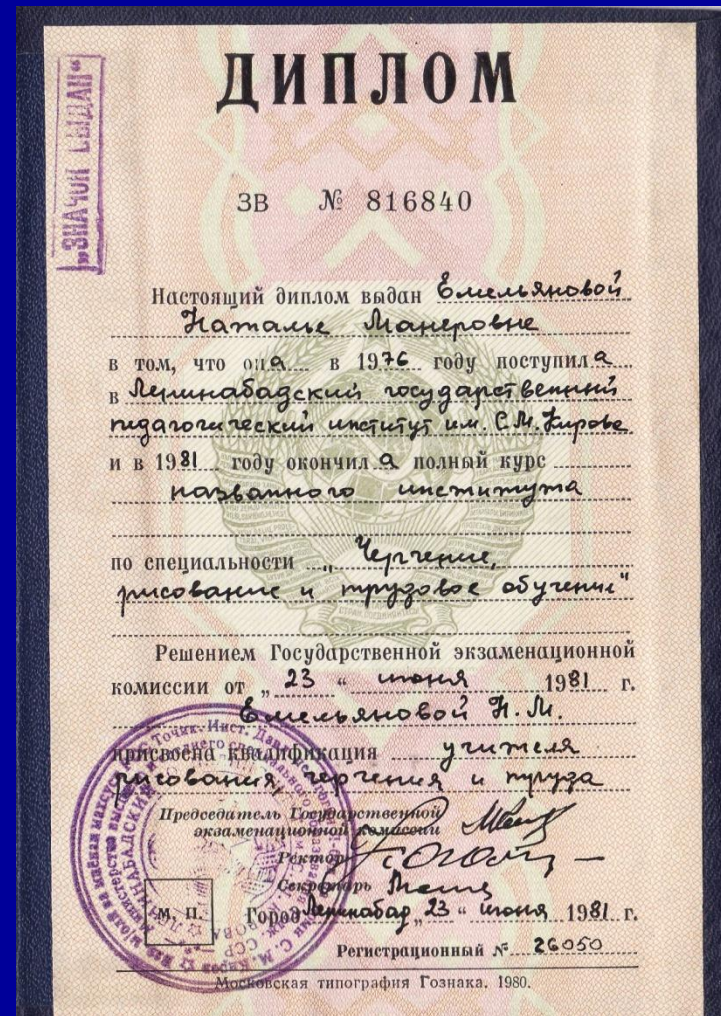 „ЗНАЧОК ВЫДАН“
ДИПЛОМ
ЗВ № 816840
Настоящий диплом выдан Емельяновой
Наталье Манеровне
в том, что она в 1976 году поступила
в Ленинабадский государственный
педагогический институт им. С.М.Кирова
и в 1981 году окончила полный курс
названного института
по специальности „Черчение,
рисование и трудовое обучение“
Решением Государственной экзаменационной
комиссии от „23“ июня 1981 г.
Емельяновой Н.М.
присвоена квалификация учителя
рисования, черчения и труда
Председатель Государственной
экзаменационной комиссии
Ректор
Секретарь
М. П.
Город Ленинабад „23“ июня 1981 г.
Регистрационный № 26050
Московская типография Гознака. 1980.